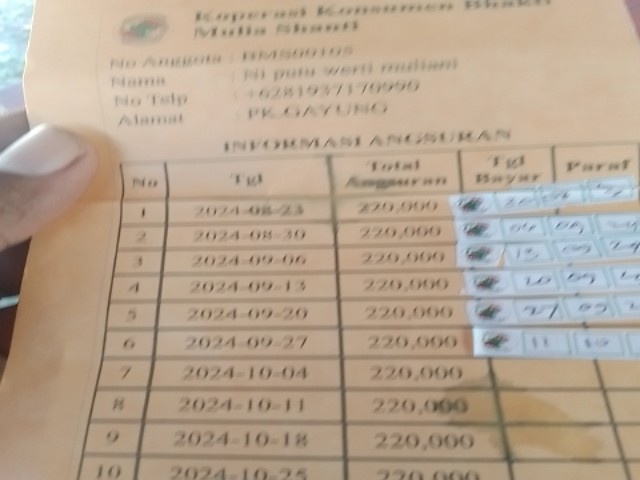 Koperasi Konsumen Bhakti
Mulia Shanti
No Anggota : BMS00105
Nama : Ni putu werti muliani
No Telp : +6281937170990
Alamat : PK.GAYUNG
INFORMASI ANGSURAN
No Tgl Total Angsuran Tgl Bayar Paraf
1 2024-08-23 220,000
2 2024-08-30 220,000
3 2024-09-06 220,000 13 09
4 2024-09-13 220,000 20 09
5 2024-09-20 220,000 27 09
6 2024-09-27 220,000 11 10
7 2024-10-04 220,000
8 2024-10-11 220,000
9 2024-10-18 220,000
10 2024-10-25 220,000